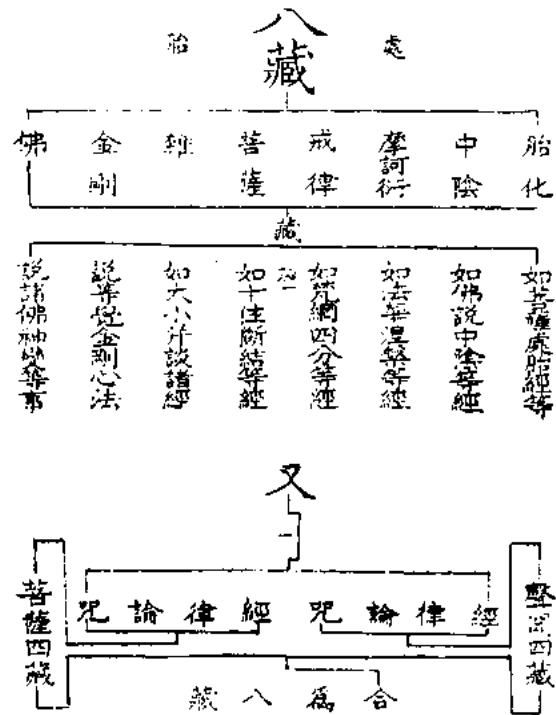 八藏
處胎
胎化
中陰
摩訶衍
戒律
菩薩
雜
金剛
佛
藏
如菩薩處胎經等
如佛說中陰等經
如法華涅槃等經
如梵網四分等經
如十住斷結等經
如大小并談諸經
說等覺金剛心法
說諸佛神變等事
又
聲聞四藏
經 律 論 咒
經 律 論 咒
菩薩四藏
合為八藏